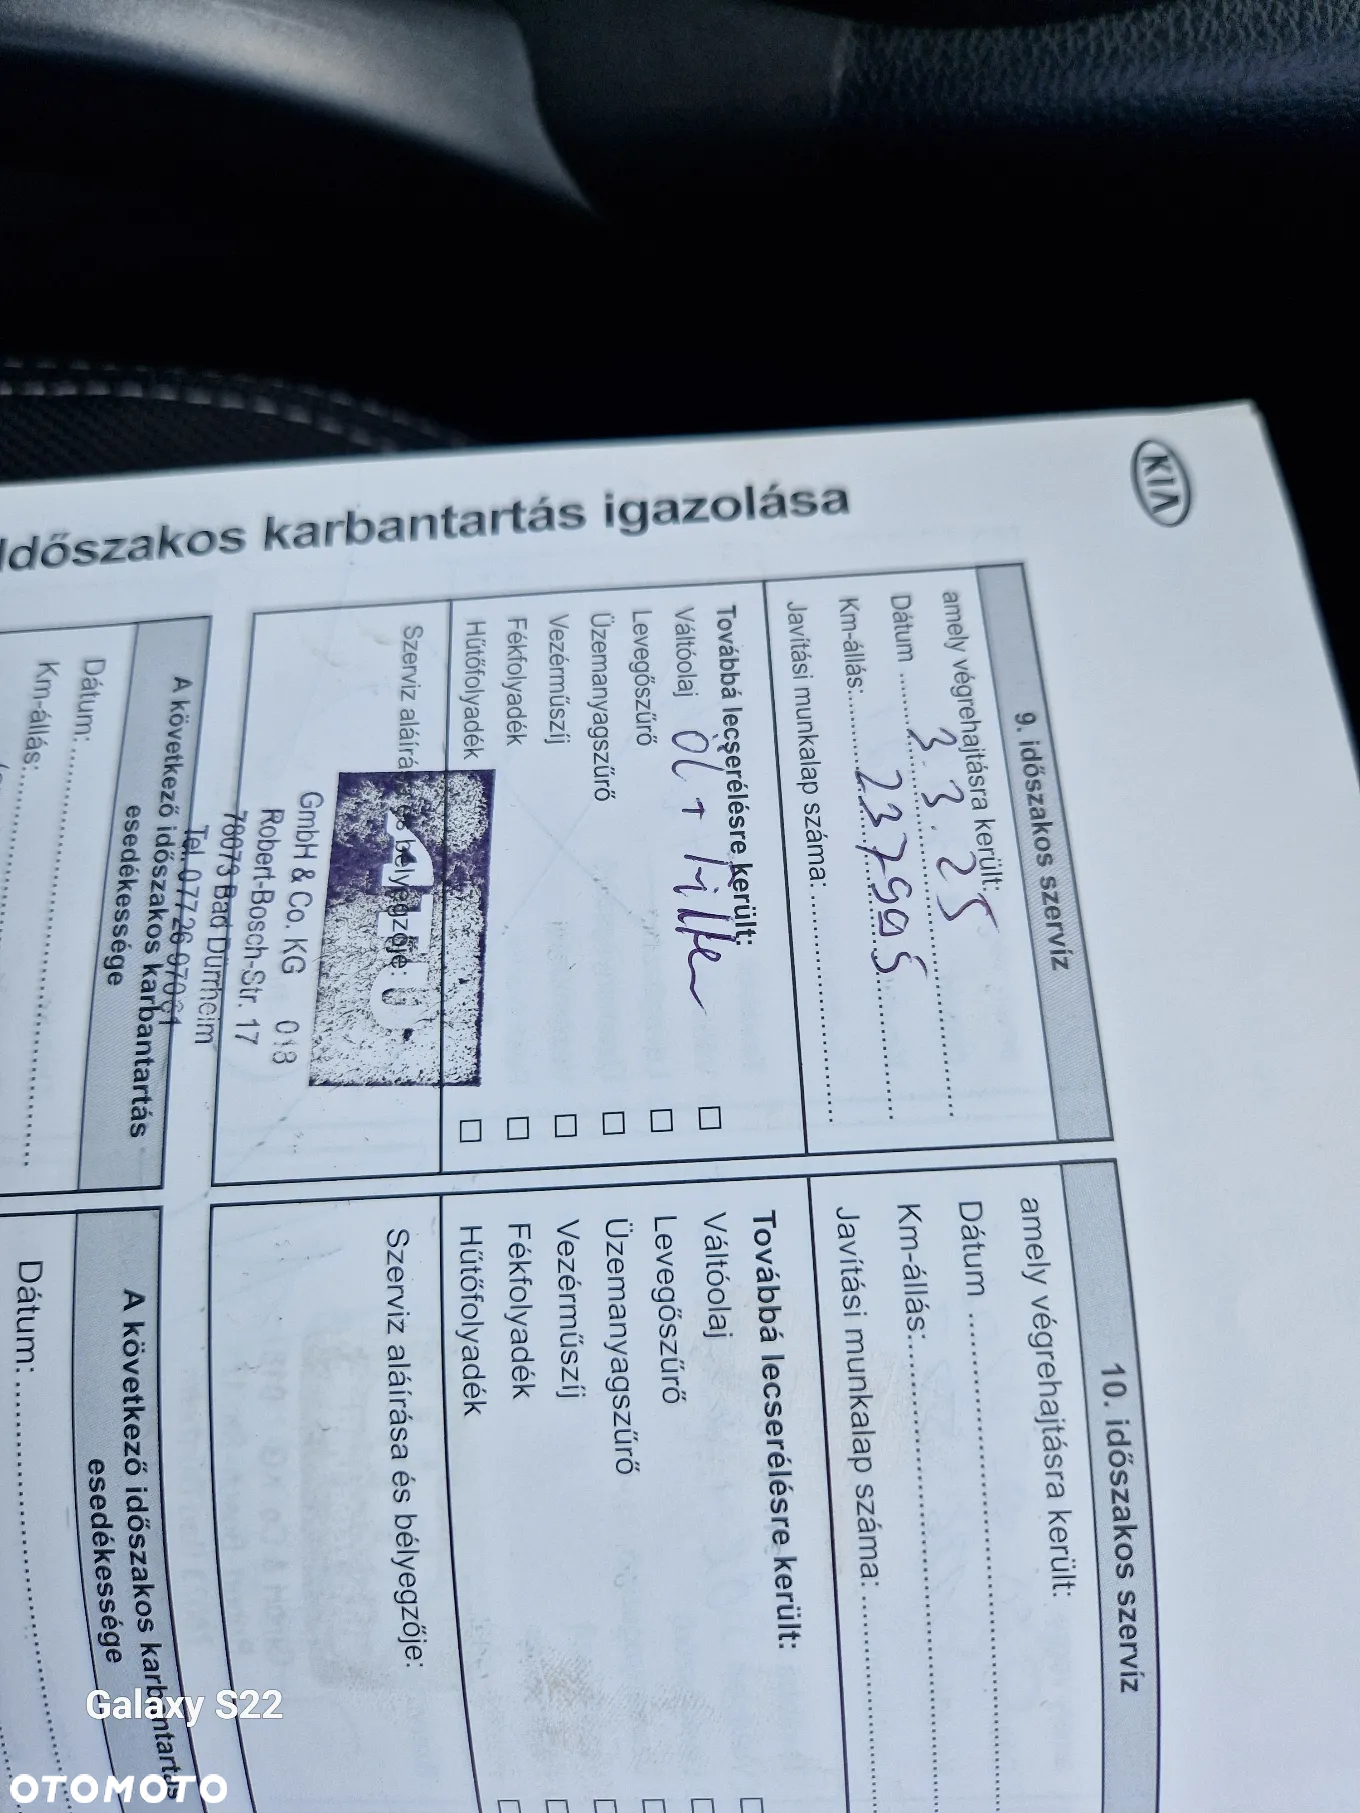 KIA
Időszakos karbantartás igazolása
9. időszakos szervíz
amely végrehajtásra került:
Dátum 3.3.25
Km-állás:
Javítási munkalap száma:
Továbbá lecserélésre került:
Váltóolaj Öl + Filter
Levegőszűrő
Üzemanyagszűrő
Vezérműszíj
Fékfolyadék
Hűtőfolyadék
Szerviz aláírá bélyegzője:
A.T.U
GmbH & Co. KG 013
Robert-Bosch-Str. 17
78073 Bad Dürrheim
Tel. 07726
A következő időszakos karbantartás
esedékessége
Dátum:
Km-állás:
10. időszakos szervíz
amely végrehajtásra került:
Dátum
Km-állás:
Javítási munkalap száma:
Továbbá lecserélésre került:
Váltóolaj
Levegőszűrő
Üzemanyagszűrő
Vezérműszíj
Fékfolyadék
Hűtőfolyadék
Szerviz aláírása és bélyegzője:
A következő időszakos karbantartás
esedékessége
Dátum:
Galaxy S22
OTOMOTO